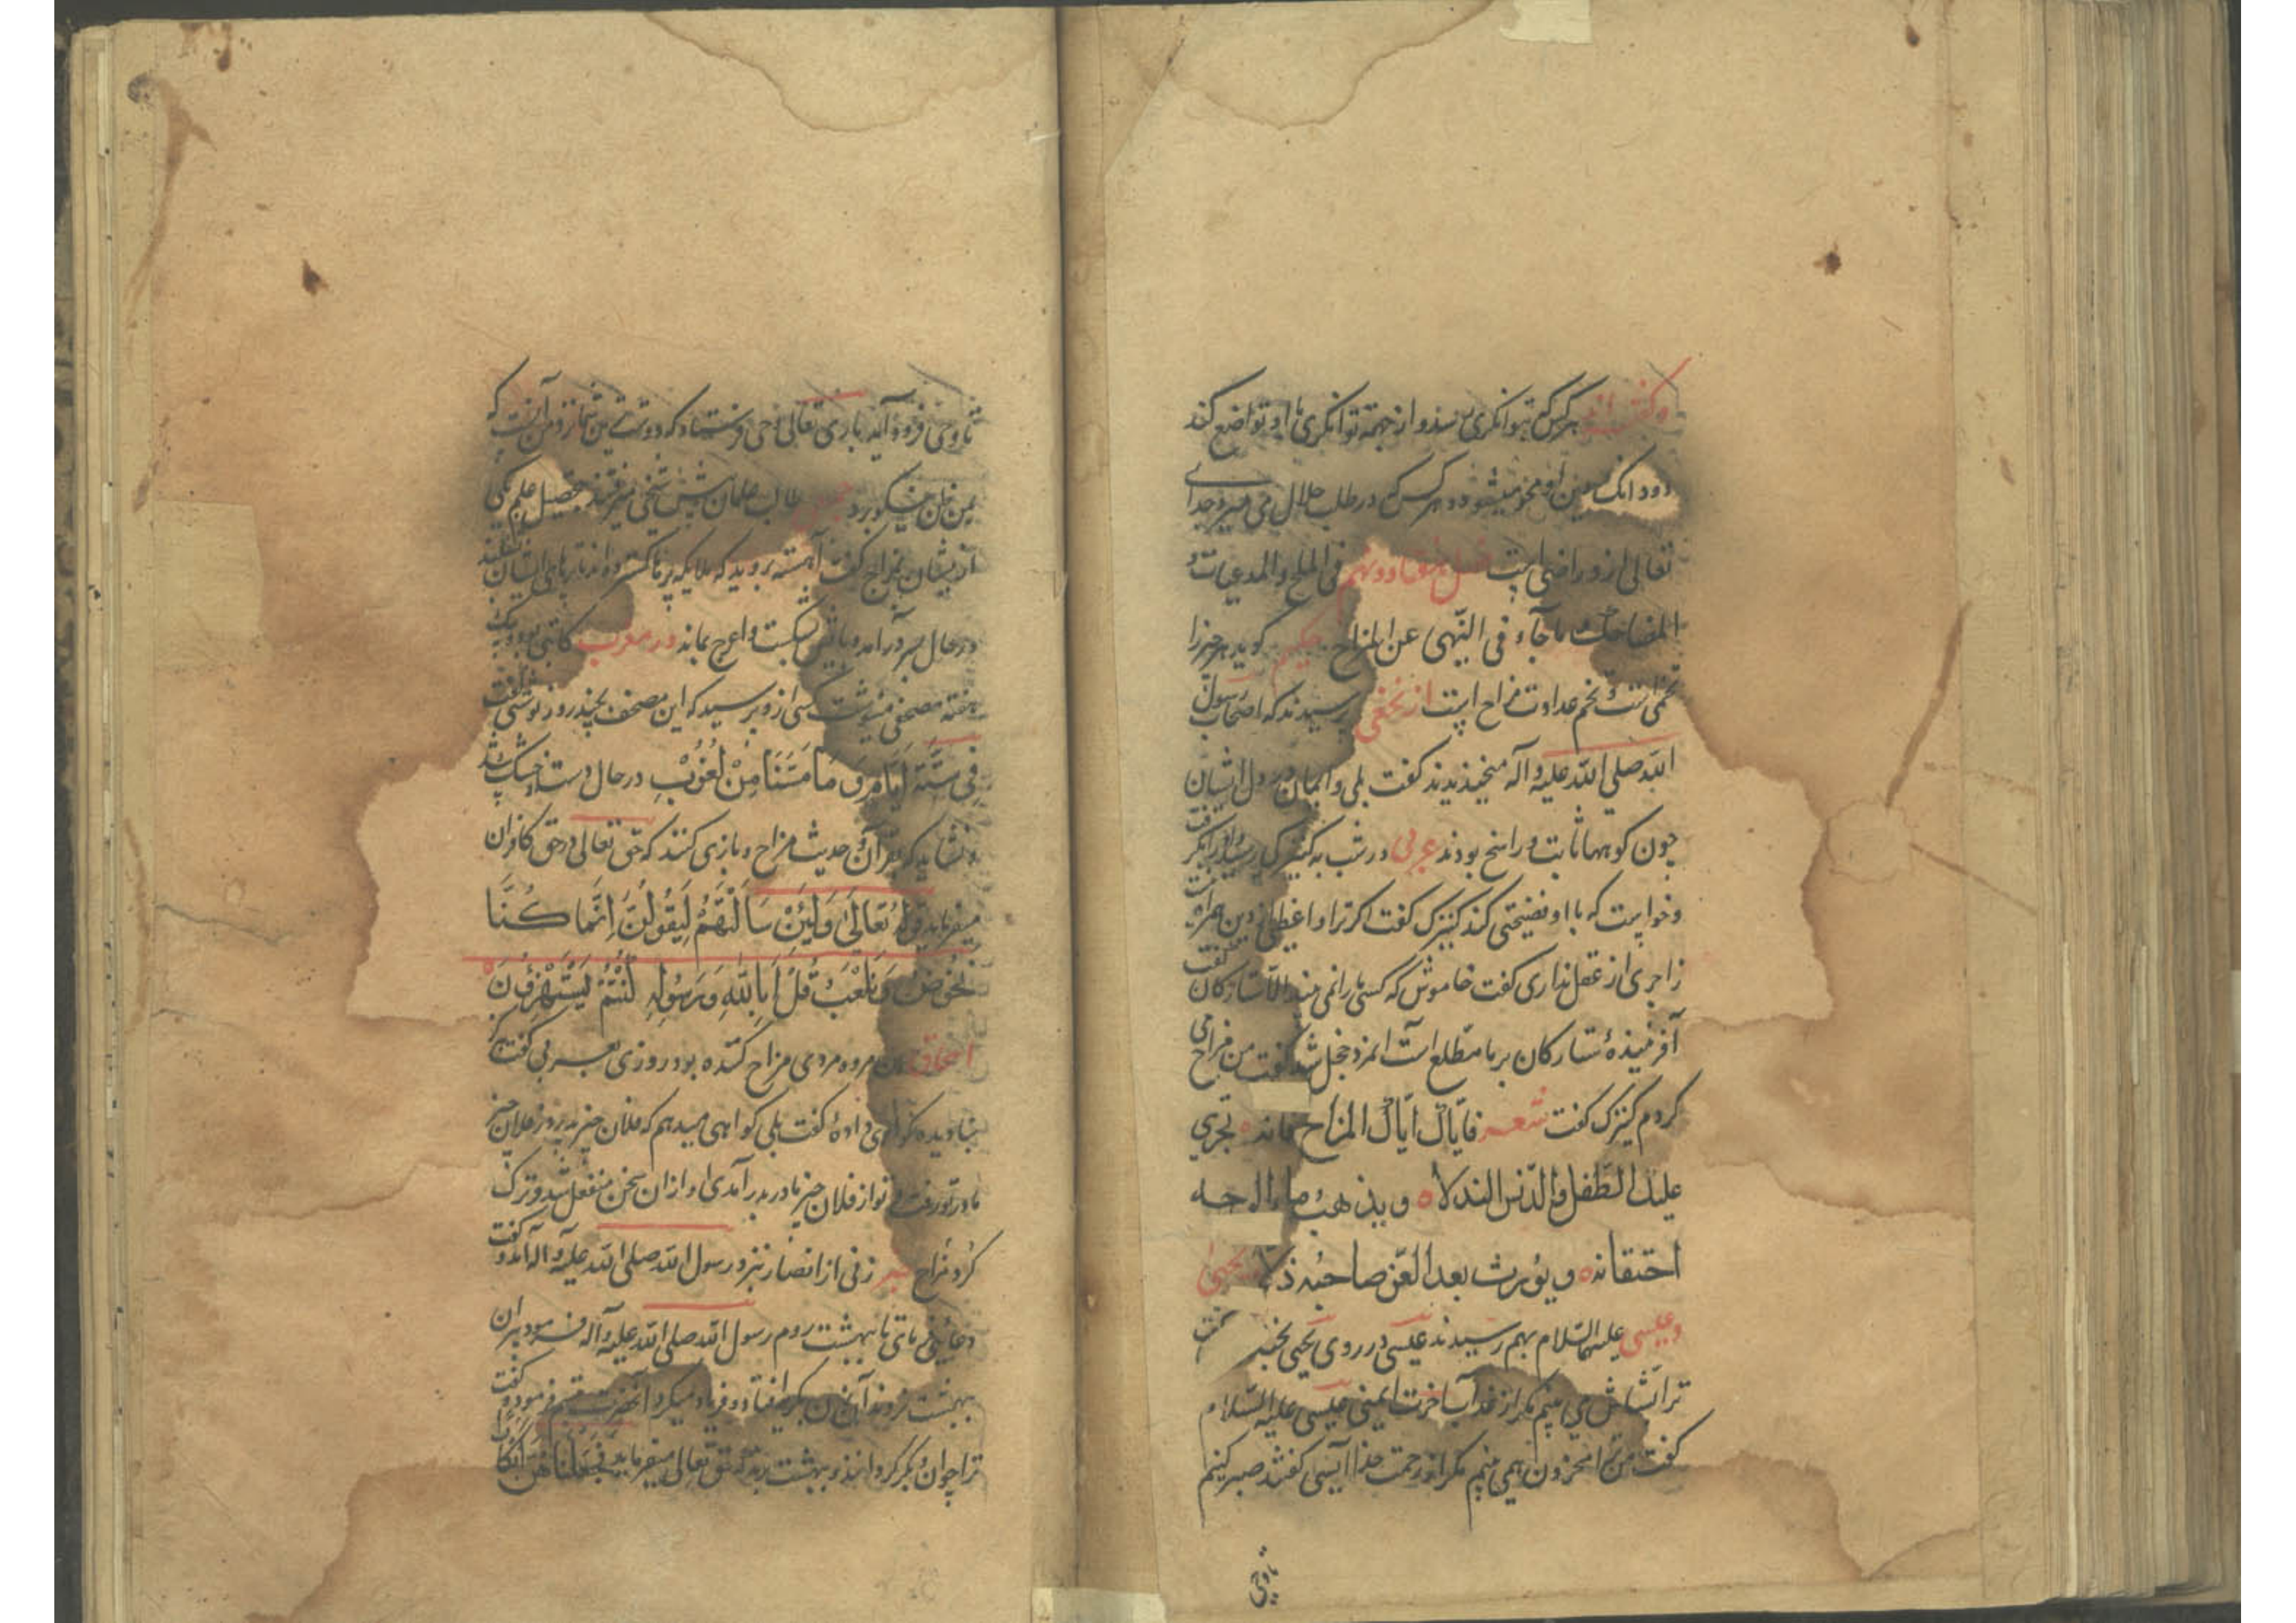 و گفته‌اند هرکس که بتوانگری رسد و از جهة توانگری با او تواضع کند
دو دانک دین او محو میشود و هرکس که در طلب حلال می میرد خدای
تعالی ازو راضی است فصل هفتاد و نهم فی الملح و المدعبات و
المضاحک و ما جآء فی النّهی عن المزاح حکیمی کوید هر چیز را
تخمی است و تخم عداوت مزاح است از نخعی پرسیدند که اصحاب رسول
الله صلی الله علیه و آله میخندیدند کفت بلی و ایمان در دل ایشان
چون کوهها ثابت و راسخ بودند عربی در شب به کنیزکی رسید
و خواست که با او فضیحتی کند کنیزک کفت اکر ترا واعظی از دین همراه نیست
زاجری از عقل نداری کفت خاموش که کسی ما را نمی بیند الّا ستارکان کفت
آفرینندهٔ ستارکان بر ما مطّلع است آنمرد خجل شد کفت من مزاح می
کردم کنیزک کفت شعر فایّاک ایّاک المزاح فانه تجری
علیک الطّفل و الدّنس النذلا و یذهب ماء الوجه
احتقانه و یورث بعد العزّ صاحبه ذلا یحیی
و عیسی علیهما السّلام بهم رسیدند عیسی در روی یحیی بخندید کفت
ترا بشّاش می بینم مکر از عذاب آخرت ایمنی عیسی علیه السّلام
کفت من ترا محزون همی بینم مکر از رحمت خدا آیسی کفتند صبر کنیم
تا وحی
تا وحی فرود آید باری تعالی وحی فرستاد که دوست‌ترین شما نزد من آنست که
بمن ظن نیکو برد طالب علمان پیش شیخی میرفتند بتحصیل علم یکی
از ایشان بمزاح کفت آهسته بروید که ملایکه پرها کسترده‌اند تا پاهای ایشان نشکند
در حال بسر در آمد و پایش بشکست و اعرج بماند در مغرب کاتبی بود و یک
هفته مصحفی مینوشت کسی ازو پرسید که این مصحف بچند روز نوشتی کفت
فِی سِتَّةِ اَیَّامٍ وَ مَا مَسَّنَا مِنْ لُغُوبٍ در حال دستش خشک شد
و نشاید که بقرآن و حدیث مزاح و بازی کنند که حق تعالی در حق کافران
میفرماید قوله تَعَالیٰ وَلَئِنْ سَاَلْتَهُمْ لَیَقُولُنَّ اِنَّمَا کُنَّا
نَخُوضُ وَ نَلْعَبُ قُلْ اَبِاللهِ وَ رَسُولِهِ کُنْتُمْ تَسْتَهْزِؤُنَ
مروه مردی مزاح کننده بود روزی بعربی کفت که
بنادیده کواهی داده کفت بلی کواهی میدهم که فلان چیز پدر بفلان چیز
مادر تو رفت و تو از فلان چیز مادر بدر آمدی او ازان سخن منفعل شد و ترک
کرد مزاح خبر زنی از انصار نزد رسول الله صلی الله علیه و آله آمد و کفت
دعایی فرمای تا ببهشت روم رسول الله صلی الله علیه و آله فرمود پیران
ببهشت نروند آن زن بگریه افتاد و فریاد میکرد آنحضرت تبسّم فرمود و کفت
ترا جوان و بکر کردانند و ببهشت برند که حق تعالی میفرماید فَجَعَلْنَاهُنَّ اَبْکَارًا